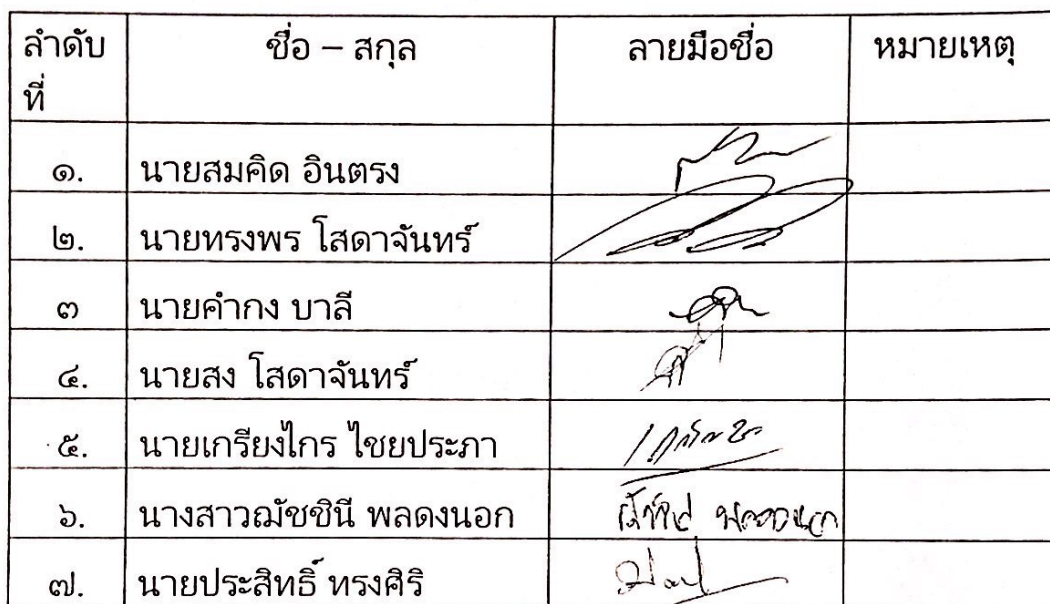 ลำดับ ชื่อ – สกุล ลายมือชื่อ หมายเหตุ
ที่
๑. นายสมคิด อินตรง
๒. นายทรงพร โสดาจันทร์
๓ นายคำกง บาลี
๔. นายสง โสดาจันทร์
๕. นายเกรียงไกร ไชยประภา
๖. นางสาวฌัชชินี พลดงนอก
๗. นายประสิทธิ์ ทรงศิริ